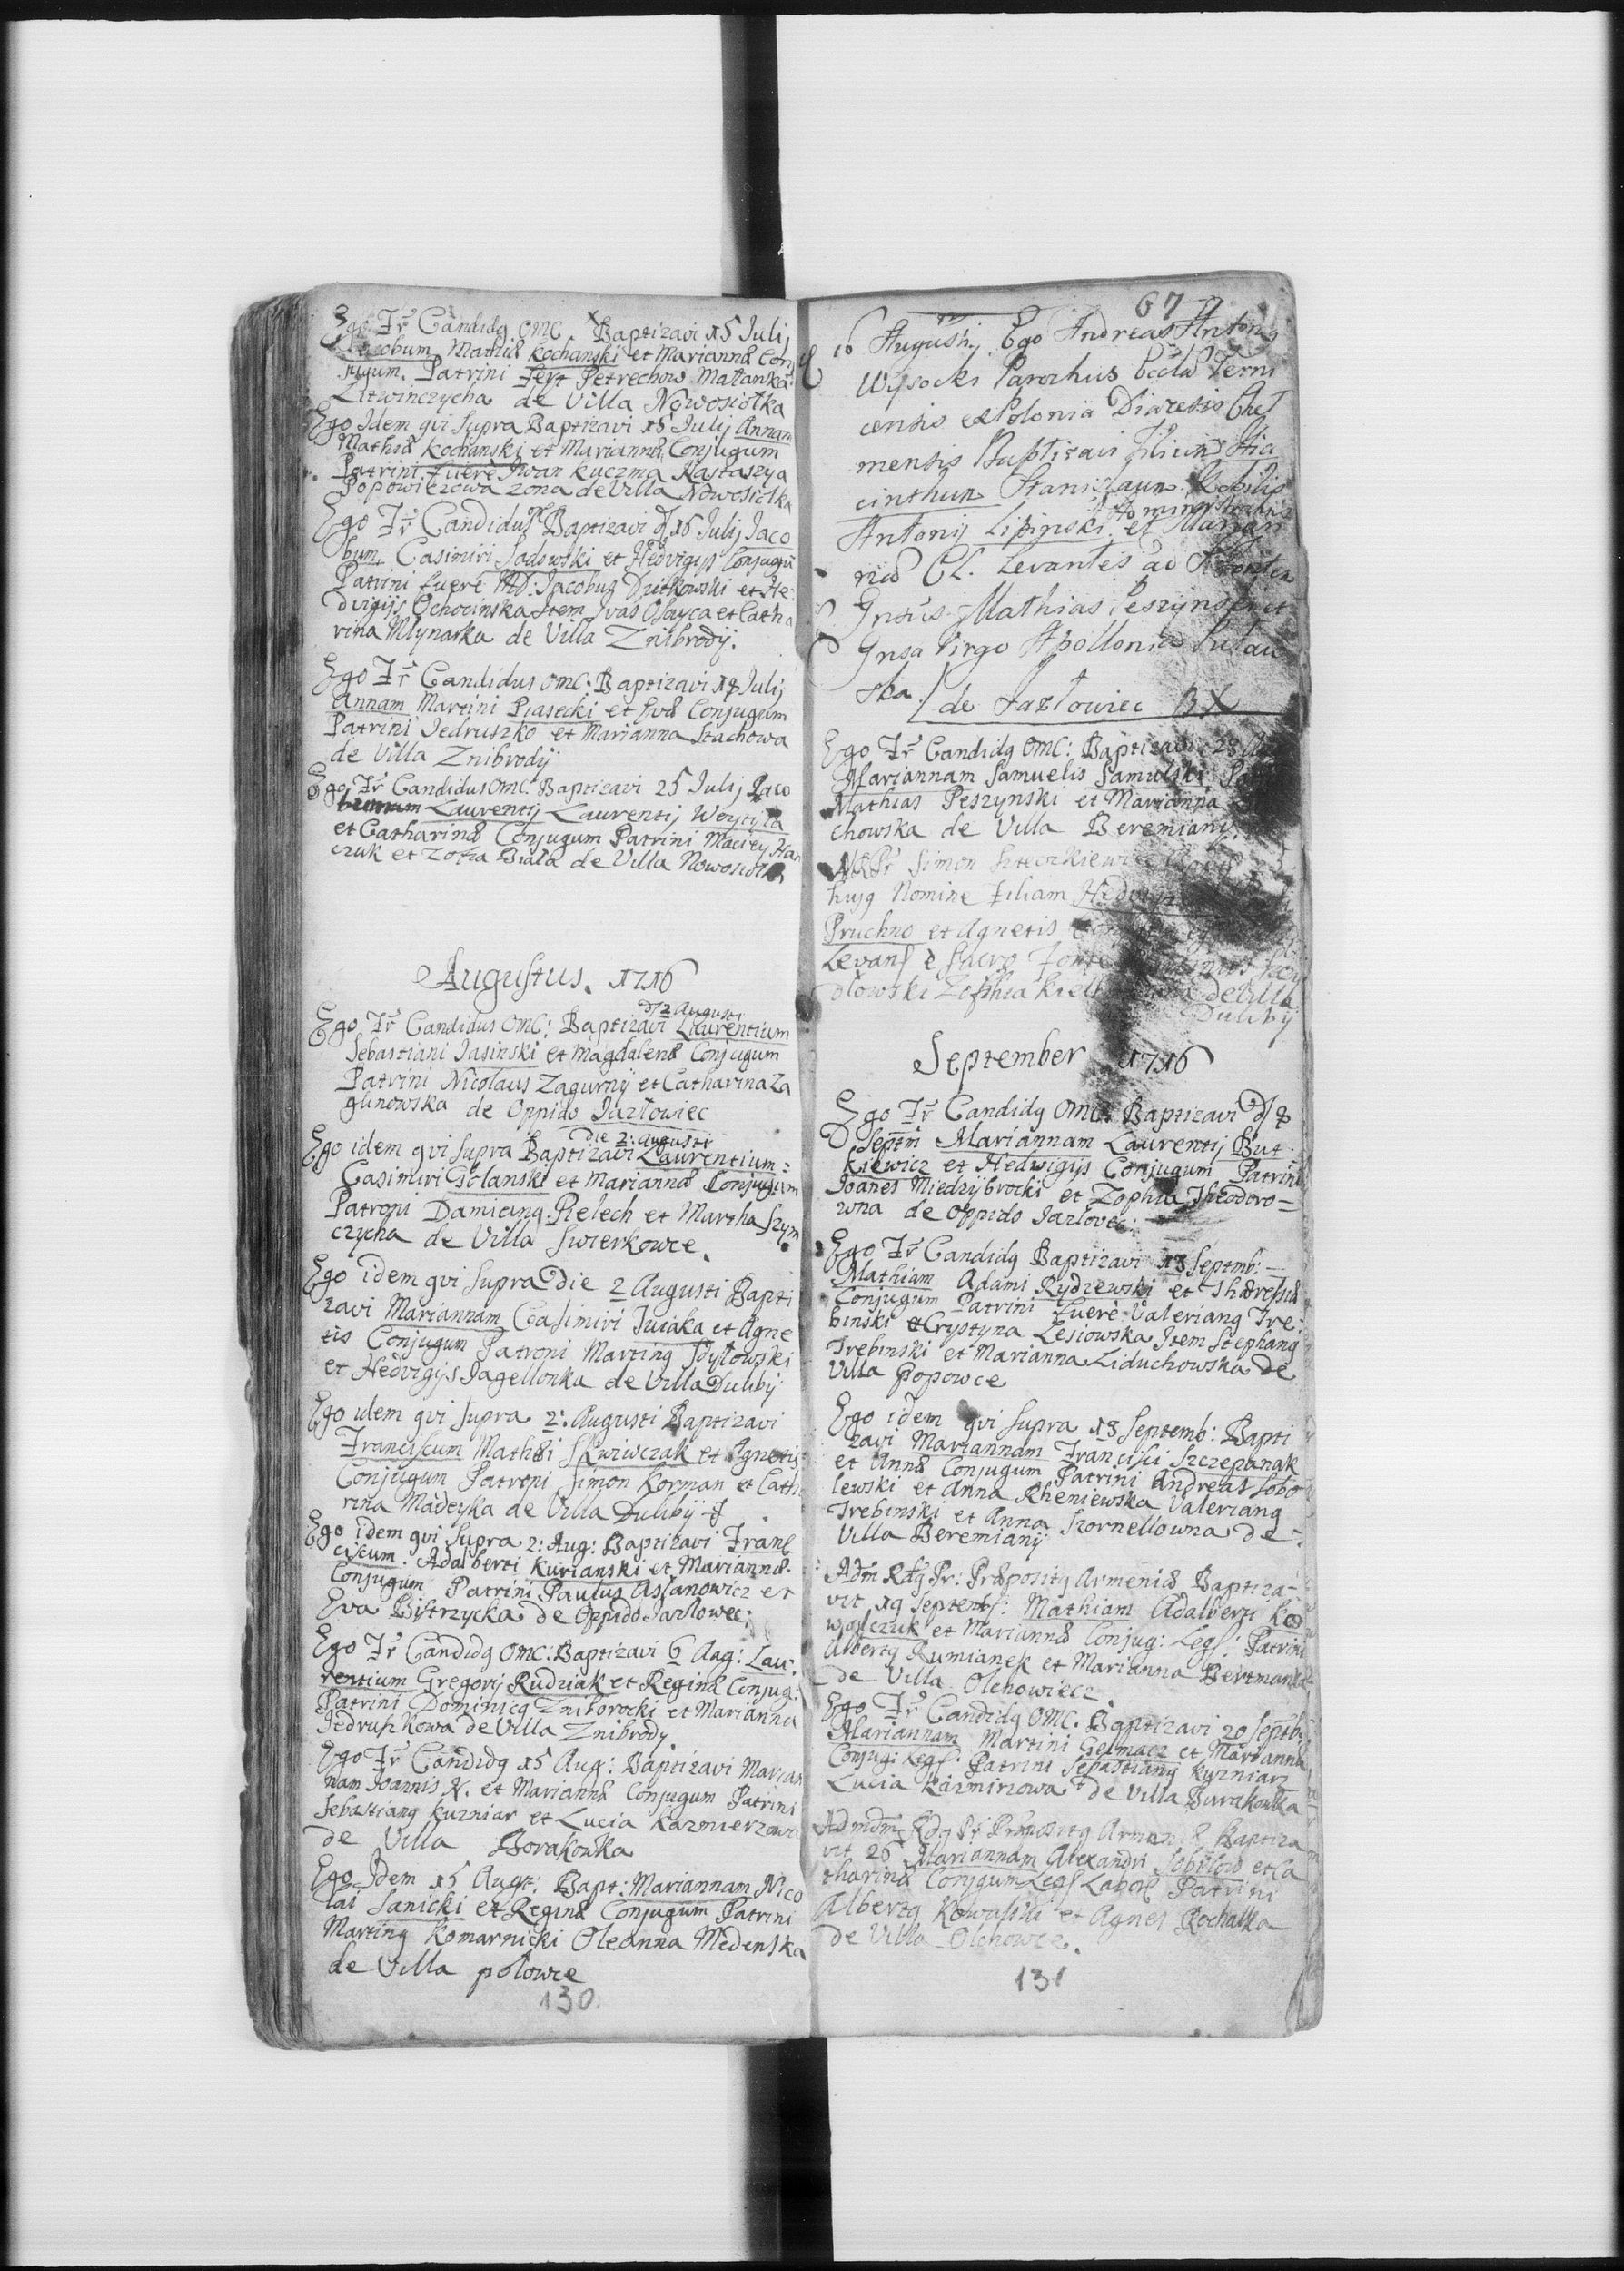 Ego Fr Candidg OMC. Baptizavi 15 Julij
Jacobum Mathiæ Kochanski et Mariannæ Con
jugum. Patrini Petrechow
Litwinczycha de Villa Nowosiołka
Ego Idem qvi Supra Baptizavi 15 Julij Annam
Mathiæ Kochanski et Mariannæ Conjugum
Patrini fuere Iwan Kuczma Nastaszya
Popowiczowa zona de Villa Nowosiołka
Ego Fr Candidus Baptizavi 16 Julij Jaco
bum Casimiri Sadowski et Hedvigis Conjugu
Patrini fuere MD: Jacobus Dutkowski et He
dvigijs Ochocinska Item Ivas et Catha
rina Mlynarka de Villa Znibrodij.
Ego Fr Candidus OMC: Baptizavi 18 Julij
Annam Martini Piasecki et Evæ Conjugum
Patrini Jedruszko et Marianna Stachowa
de Villa Znibrodij
Ego Fr Candidus OMC: Baptizavi 25 Julij Jaco
Laurentij Laurentij Woytyla
et Catharinæ Conjugum Patrini Maciey Han
czuk et Zofia Biala de Villa Nowosiołka
Augustus. 1716
d 2 Augusti
Ego Fr Candidus OMC: Baptizavi Laurentium
Sebastiani Jasinski et Magdalenæ Conjugum
Patrini Nicolaus Zagurnij et Catharina Za
gunowska de Oppido Jazlowiec
die 2: Augusti
Ego idem qvi Supra Baptizavi Laurentium=
Casimiri Golanski et Mariannæ Conjugum
Patroni Damiang Pielech et Martha Szym
czycha de Villa Swierkowce.
Ego idem qvi Supra die 2 Augusti Bapti
zavi Mariannam Casimiri Juiaka et Agne
tis Conjugum Patroni Marting Idytowski
et Hedvigijs Jagellonka de Villa Dulibij
Ego idem qvi Supra 2: Augusti Baptizavi
Franciscum Mathæi Skwiwczak et Agnetis
Conjugum Patroni Simon Korman et Cath
rina Madeyka de Villa Dulibij
Ego idem qvi Supra 2: Aug: Baptizavi Fran
ciscum. Adalberti Kurianski et Mariannæ.
Conjugum Patrini Paulus Assanowicz et
Eva Bistrzycka de Oppido Jazlowec;
Ego Fr Candidg OMC: Baptizavi 6 Aug: Lau:
rentium Gregorij Rudziak et Reginæ Conjug:
Patrini Dominicg Zniborocki et Marianna
Jedruszkowa de Villa Znibrody
Ego Fr Candidg 15 Aug: Baptizavi Marian
nam Joannis N. et Mariannæ Conjugum Patrini
Sebastiang Kuzniar et Lucia Kazmierzowa
de Villa Borakowka
Ego Idem 15 Aug: Bapt: Mariannam Nico
lai Sanicki et Reginæ Conjugum Patrini
Marting Komarnicki Oleanna Medenska
de Villa połowce
130
67
16 Augustij Ego Andreas Antong
Wysocki Parochus Eccla Zerni
censis ex Polonia Diæcesis Chel
mensis Baptizavi filium Hia
cinthum Stanislaum Nobilis
Antonij Lipinski et Marian
næ CL. Levantes ad S Fontem
Gnsus Mathias Peszynski et
Gnsa Virgo Apollonia
ska de Jazłowiec
Ego Fr Candidg OMC: Baptizavi 28
Mariannam Samuelis Samulski
Mathias Peszynski et Marianna
chowska de Villa Beremiany.
Simon
hujg Nomine Filiam
Pruchno et Agnetis
Levans e Sacro Fonte
dłowski Zophia de Villa
Dulibij
September 1716
Ego Fr Candidg OMC: Baptizavi d 8
Septm Mariannam Laurentij But
kiewicz et Hedwigijs Conjugum Patrini
Joanes Miedzybrocki et Zophia Theodoro=
wna de Oppido Jazlovec:
Ego Fr Candidg Baptizavi 13 Septmb:
Mathiam Adami Rydzewski et Theresiæ
Conjugum Patrini fuere Valeriang Tre:
binski et Crystyna Lesiowska Item Stephang
Trebinski et Marianna Liduchowska de
Villa Popowce
Ego idem qvi Supra 13 Septemb: Bapti
zavi Mariannam Francisci Szczepaniak
et Annæ Conjugum Patrini Andreas Sobo
lewski et Anna Rheniewska Valeriang
Trebinski et Anna Skornellowna de
Villa Beremianij
Adm Rdg Pr: Præpositg Armeniæ Baptiza-
vit 19 Septemb: Mathiam Adalberti Ko
walczuk et Mariannæ Conjug: Legs: Patrini
Albertg Rumianek et Marianna Bertmanka
de Villa Olehowiecz
Ego Fr Candidg OMC. Baptizavi 20 Septb:
Mariannam Martini Gelmacz et Marianna
Conjug: Legs: Patrini Sebastiang Kuzniarz
Lucia Kazmirzowa de Villa Burakowka
Admdm Rdg Pr Præpositg Armen Baptiza
vit 26 Mariannam Alexandri Sobolow et Ca
tharinæ Conjgum Legs Labor Patrini
Albertg Kowalski et Agnes Rochalka
de Villa Olehowce.
131